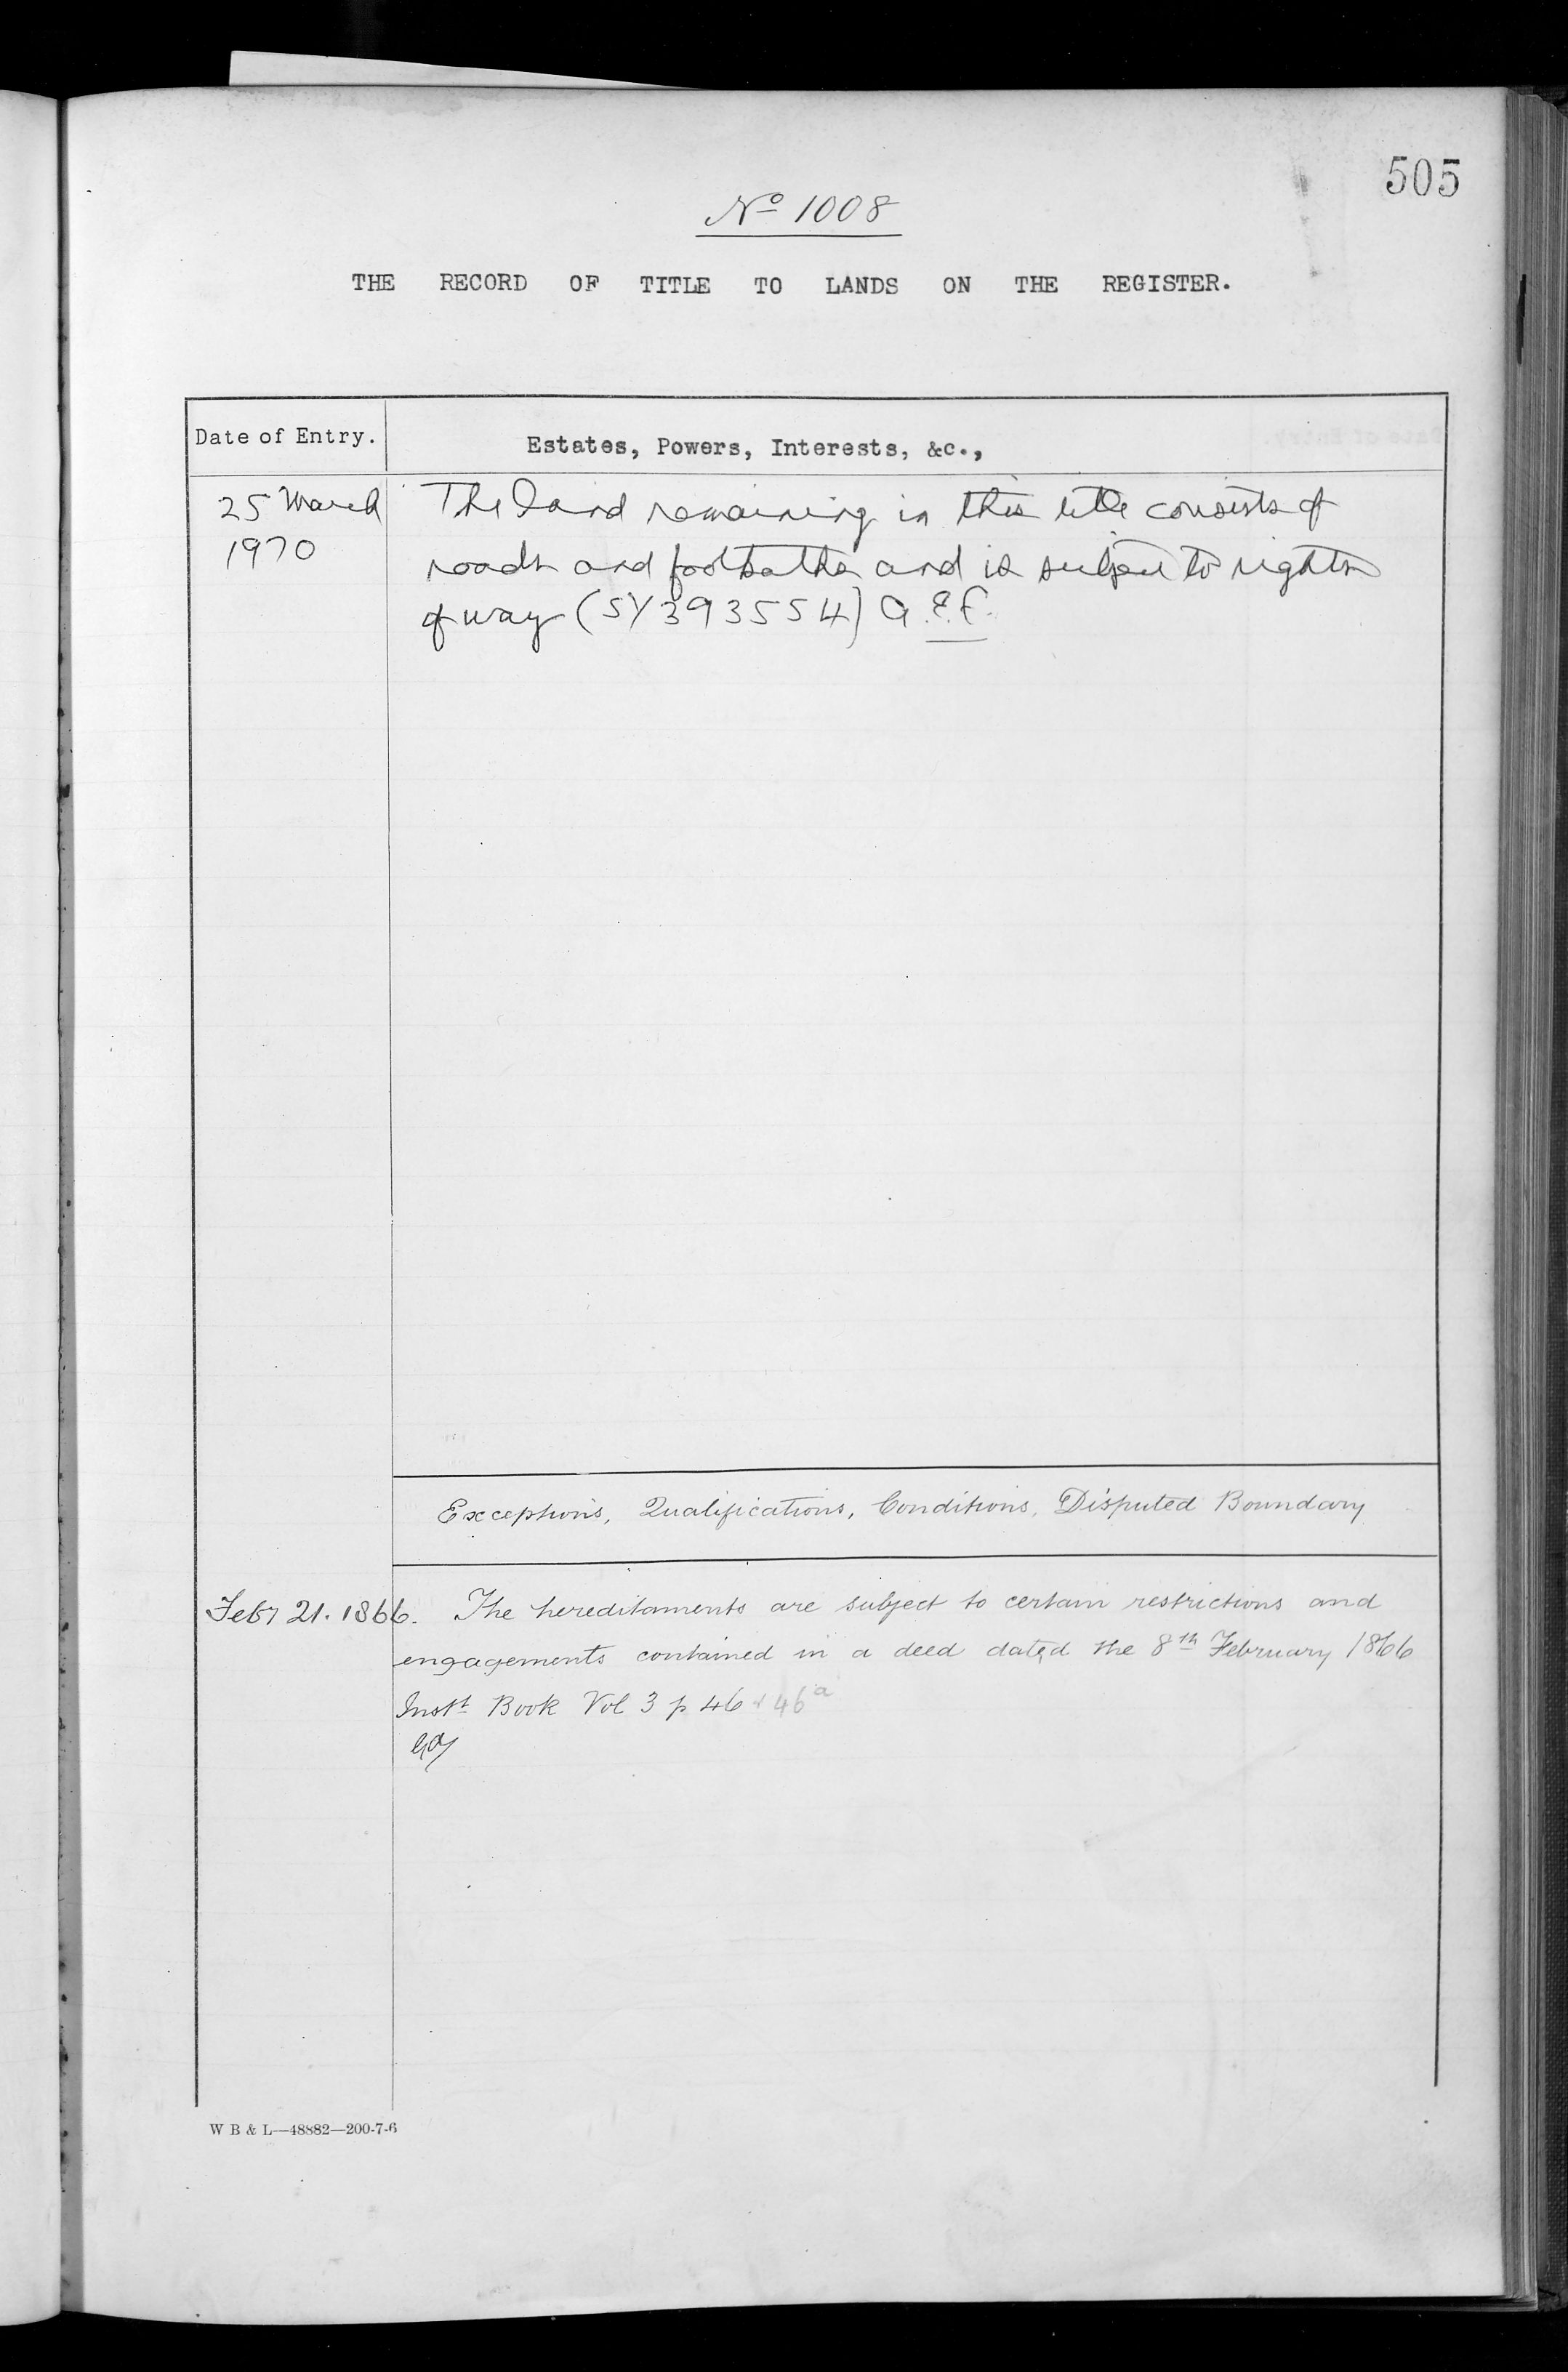 505
No 1008
THE RECORD OF TITLE TO LANDS ON THE REGISTER.
Date of Entry.
Estates, Powers, Interests, &c.,
25 March
1970
The land remaining in this title consists of
roads and footpaths and is subject to rights
of way (SY393554)
Exceptions, Qualifications, Conditions, Disputed Boundary
Feby 21. 1866. The hereditaments are subject to certain restrictions and
engagements contained in a deed dated the 8th February 1866
Instt Book Vol 3 p 46 & 46a
W B & L—48882—200-7-6